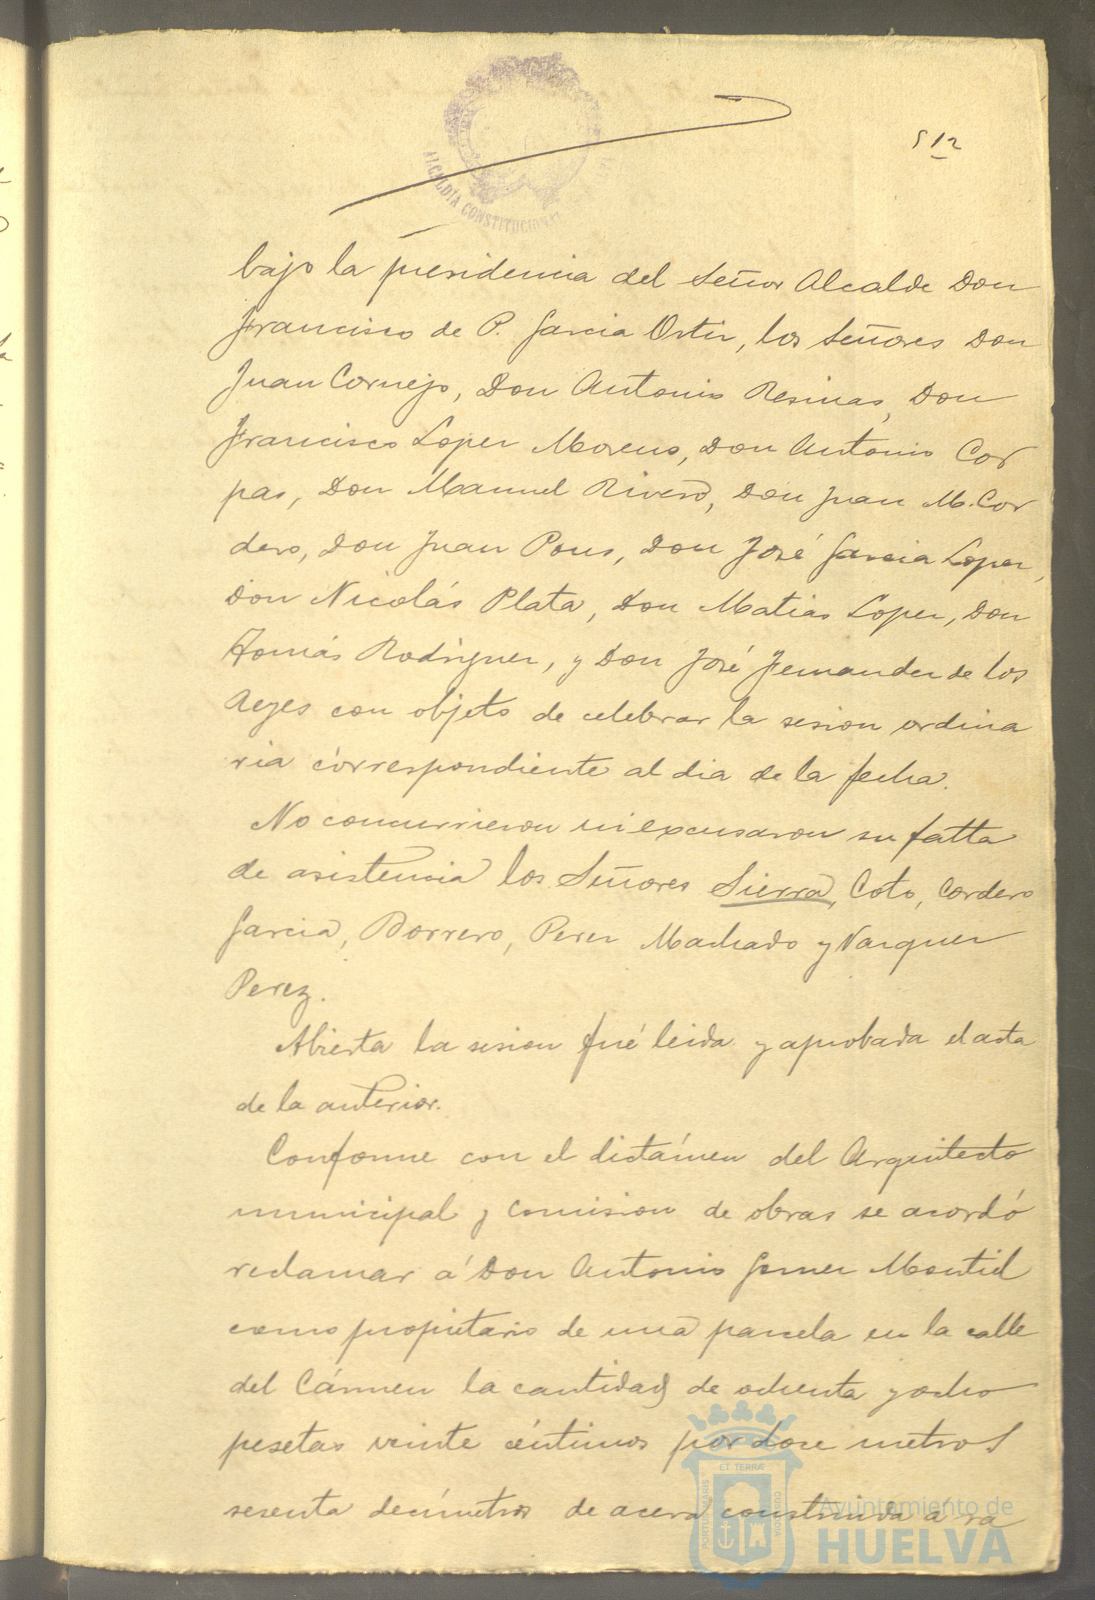 512
ALCALDÍA CONSTITUCIONAL
bajo la presidencia del Señor Alcalde Don
Francisco de P. Garcia Ortiz, los Señores Don
Juan Cornejo, Don Antonio Resinas, Don
Francisco Lopez Moreno, Don Antonio Cor
pas, Don Manuel Rivero, Don Juan M. Cor
dero, Don Juan Pons, Don José Garcia Lopez,
Don Nicolás Plata, Don Matias Lopez, Don
Tomás Rodriguez, y Don José Fernandez de los
Reyes con objeto de celebrar la sesion ordina
ria correspondiente al dia de la fecha.
No concurrieron ni excusaron su falta
de asistencia los Señores Sierra, Coto, Cordero
Garcia, Borrero, Perez Machado y Vazquez
Perez.
Abierta la sesion fué leida y aprobada el acta
de la anterior.
Conforme con el dictámen del Arquitecto
municipal y comision de obras se acordó
reclamar á Don Antonio Gomez Montiel
como propietario de una parcela en la calle
del Cármen la cantidad de ochenta y ocho
pesetas veinte céntimos por doce metros
sesenta decímetros de acera construida á ra
PORTUS MARIS ET TERRÆ CUSTODIA
Ayuntamiento de
HUELVA